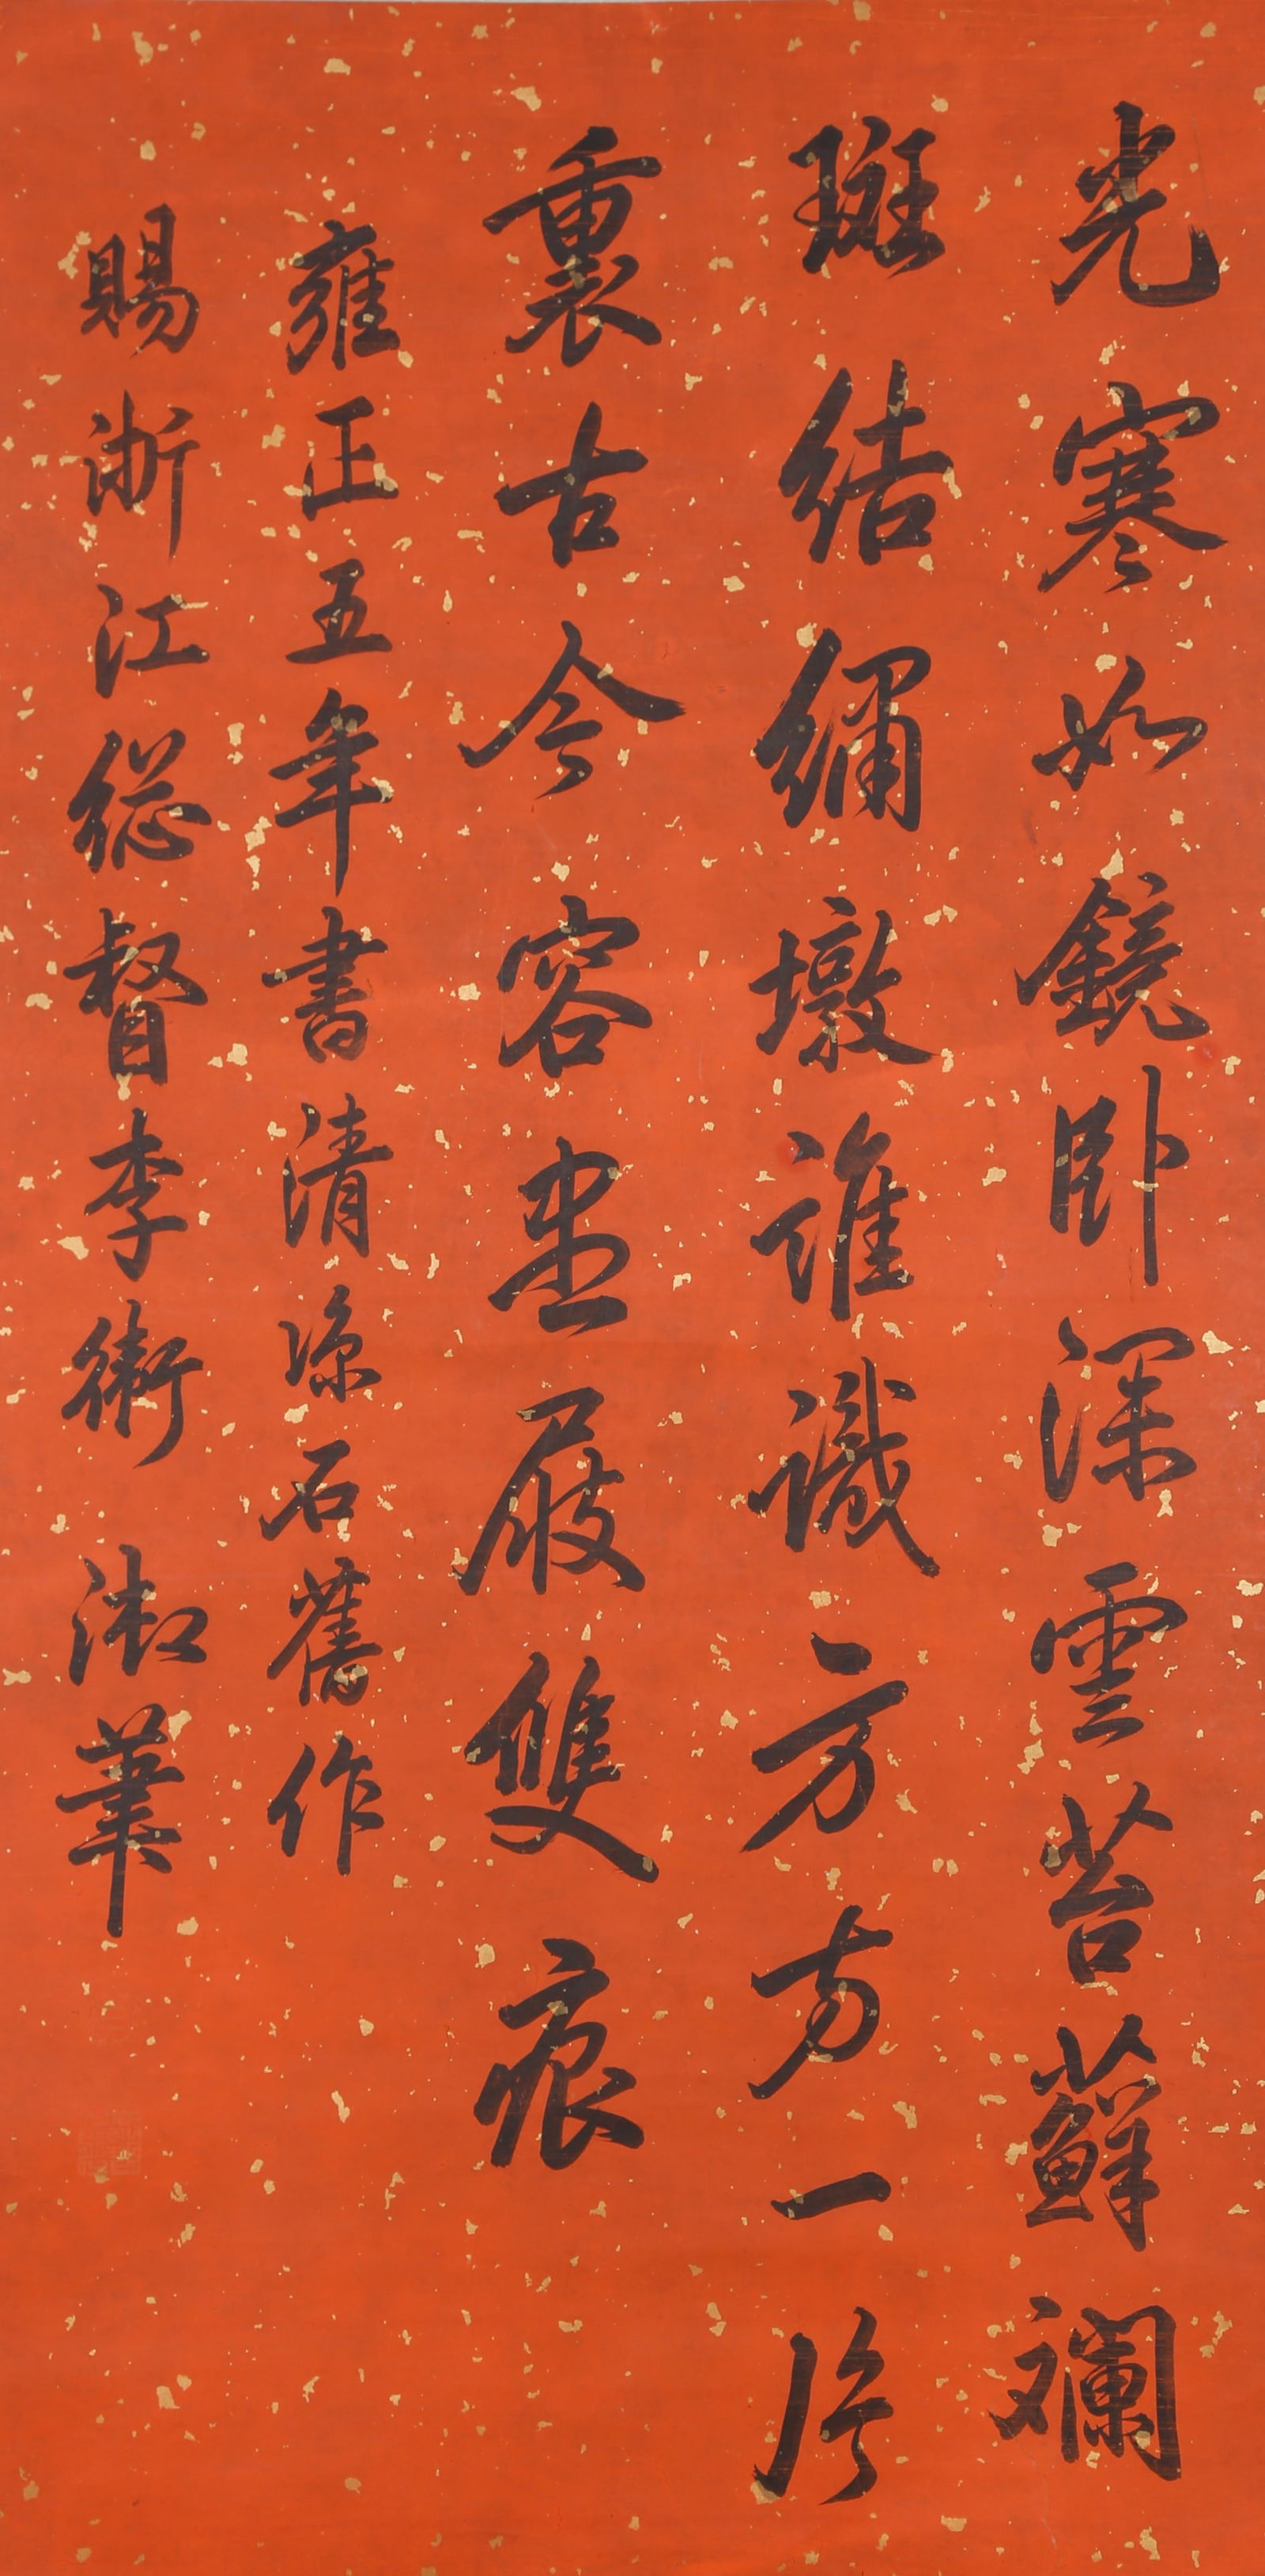 光寒如鏡卧深雲苔蘚斕
斑結繡墩誰識方方一片
裏古今容坐屐雙痕
雍正五年書清凉石舊作
賜浙江総督李衛 御筆